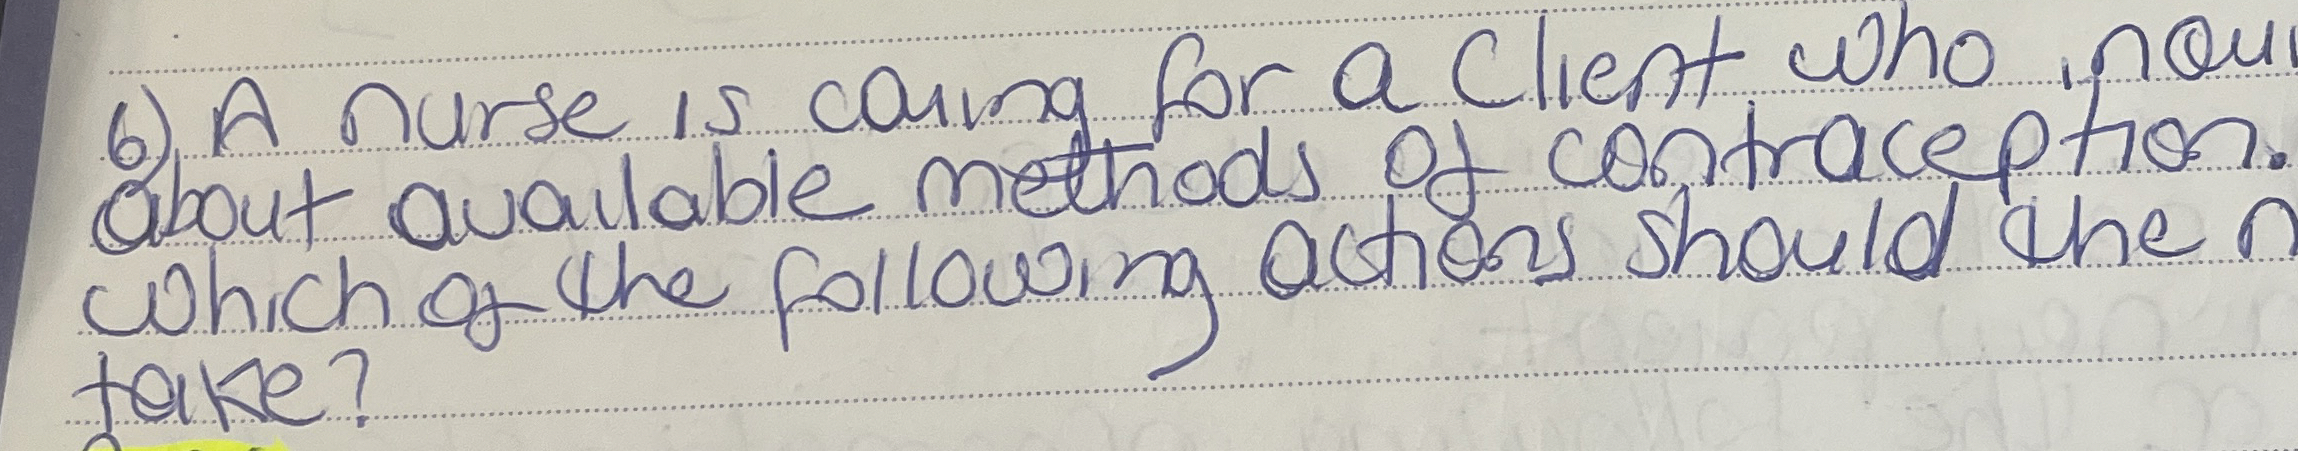 6) A nurse is caring for a Client who
about available methods of contraception.
which of the following actions should the
take?